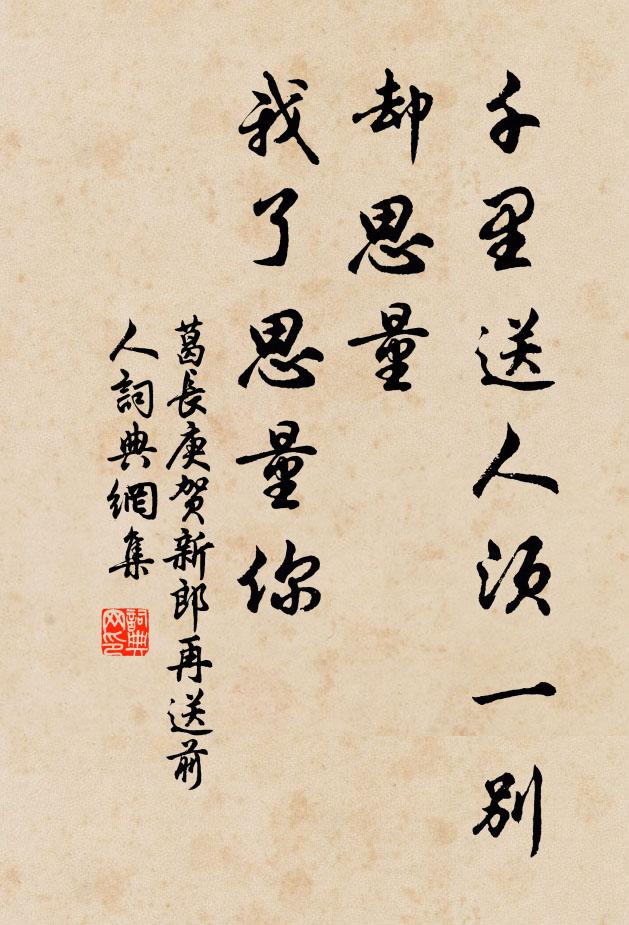 千里送人須一别
却思量
我了思量你
葛長庚賀新郎再送前
人詞典網集
詞典网印